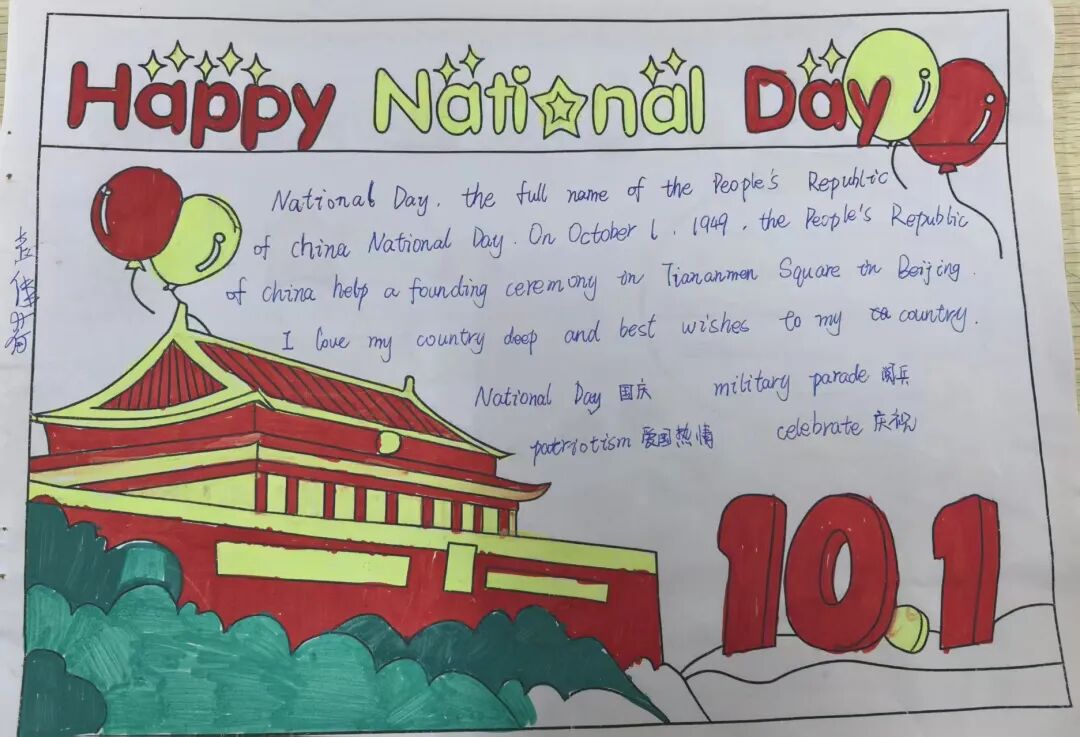 Happy National Day
National Day, the full name of the People's Republic
of china National Day. On October 1, 1949, the People's Republic
of china help a founding ceremony in Tiananmen Square in Beijing.
I love my country deep and best wishes to my country.
National Day 国庆 military parade 阅兵
patriotism 爱国热情 celebrate 庆祝
10.1